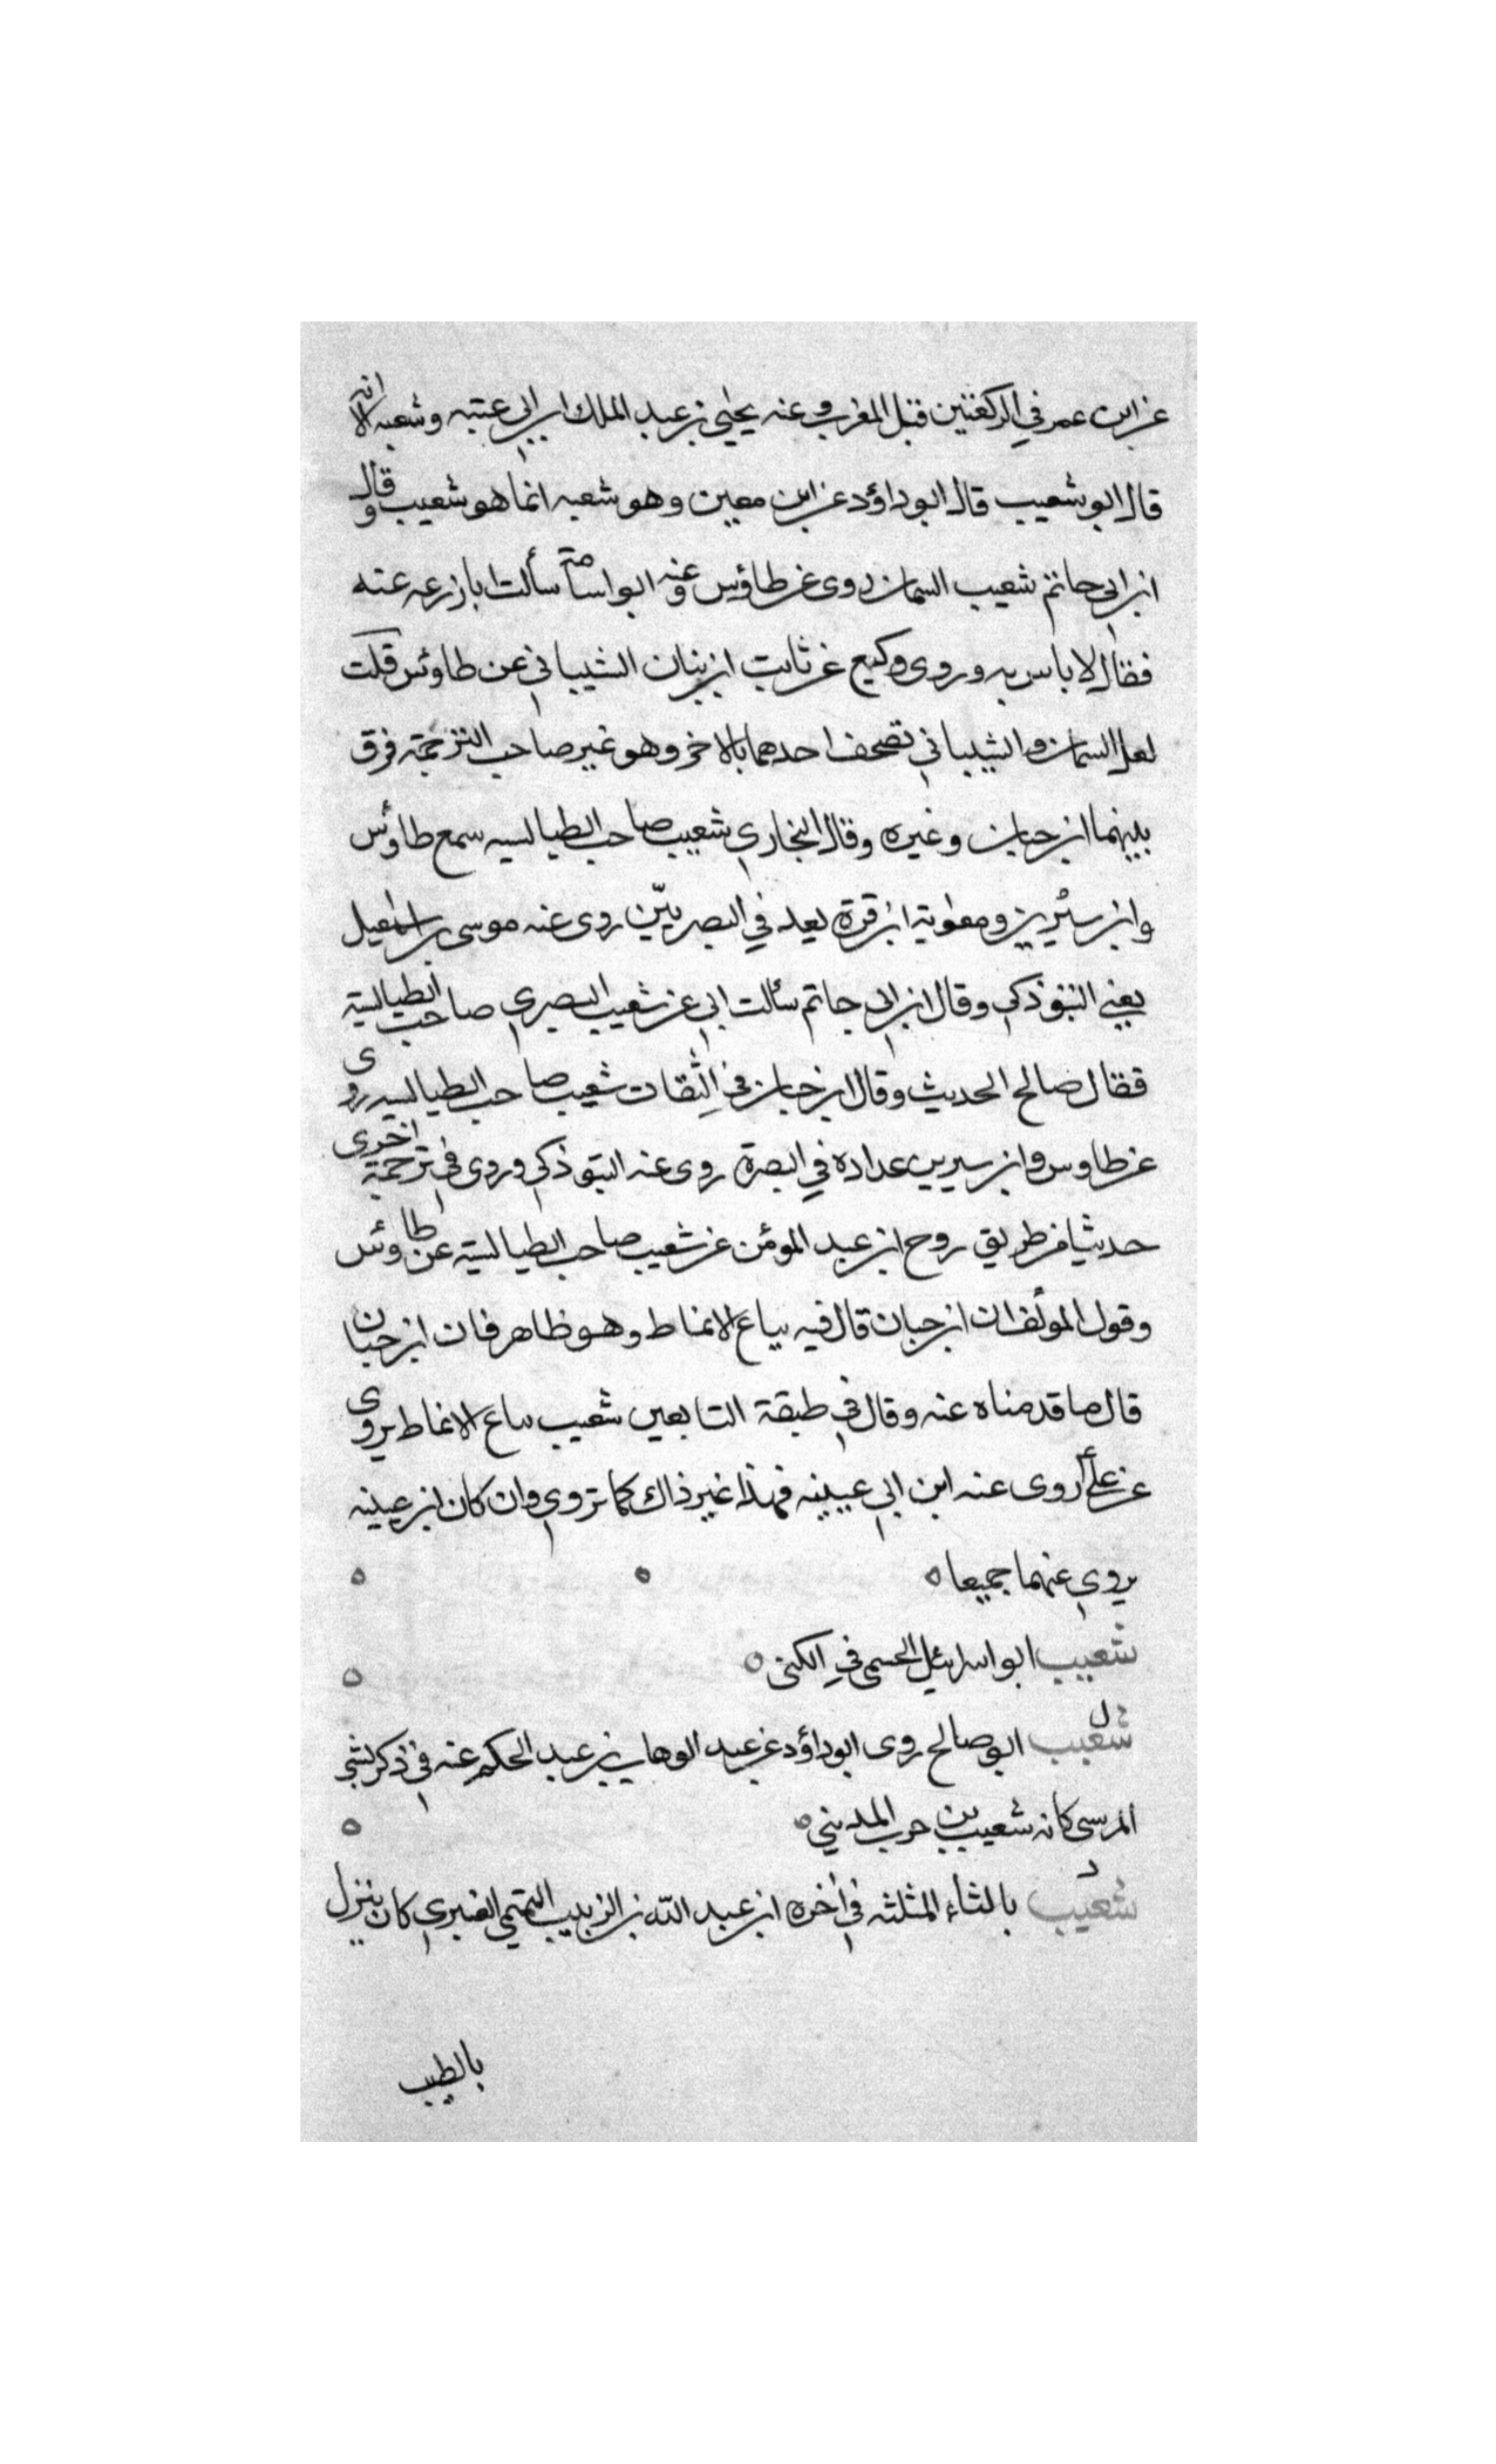 عن ابن عمر في الركعتين قبل المغرب وعنه يحيى بن عبد الملك ابن ابي عتبه وشعبه الا انه
قال ابو شعيب قال ابو داؤد عن ابن معين وهو شعبه انما هو شعيب وقال
ابن ابي حاتم شعيب السمان روى عن طاؤس وعنه ابو اسامة سألت ابا زرعه عنه
فقال لا باس به وروى وكيع عن ثابت ابن بنان الشيباني عن طاوئس قلت
لعل السمان والشيباني تصحف احدهما بالاخر وهو غير صاحب الترجمة فرق
بينهما ابن حبان وغيره وقال البخاري شعيب صاحب الطيالسيه سمع طاوئس
وابن سيرين ومعوية ابن قرة يعد في البصريين روى عنه موسى بن اسمعيل
يعني التبوذكي وقال ابن ابي حاتم سألت ابي عن شعيب البصري صاحب الطيالسية
فقال صالح الحديث وقال ابن حبان في الثقات شعيب صاحب الطيالسيه روى
عن طاوس وابن سيرين عداده في البصرة روى عنه التبوذكي وروى في ترجمة اخرى
حديثا من طريق روح ابن عبد المومن عن شعيب صاحب الطيالسية عن طاوئس
وقول المؤلف ان ابن حبان قال فيه بياع الانماط وهو ظاهر فان ابن حبان
قال ما قدمناه عنه وقال في طبقة التابعين شعيب بياع الانماط يروى
عن علي روى عنه ابن ابي عيينه فهذا غير ذاك كما تروي وان كان ابن عيينه
يروي عنهما جميعا
شعيب ابو اسرائيل الجسمى في الكنى
شعيب ابو صالح روى ابو داؤد عن عبد الوهاب بن عبد الحكم عنه في ذكر بشر
المرسى كانه شعيب بن حرب المديني
شعيب بالثاء المثلثه في أخره ابن عبد الله بن الزبيب التميمي العنبري كان ينزل
بالطيب